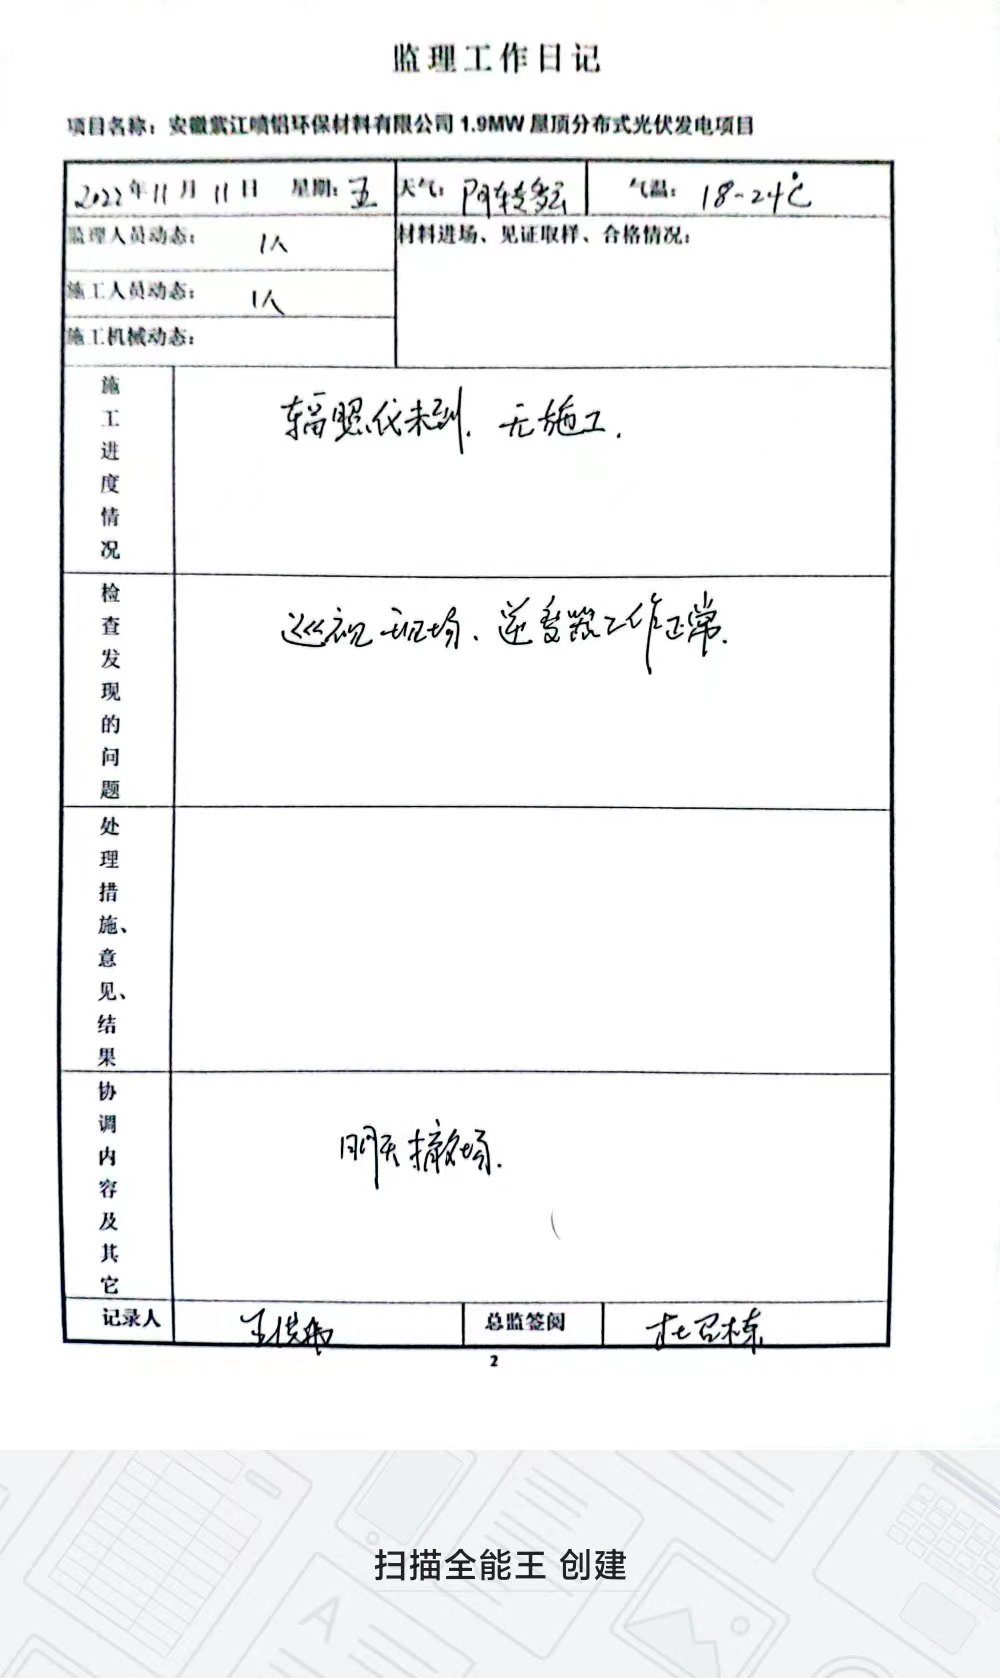 监理工作日记
项目名称：安徽紫江喷铝环保材料有限公司1.9MW屋顶分布式光伏发电项目
2022年11月11日 星期：五 天气：阴转多云 气温：18-24℃
监理人员动态： 1人 材料进场、见证取样、合格情况：
施工人员动态： 1人
施工机械动态：
施工进度情况 辐照仪未到，无施工.
检查发现的问题 巡视现场、逆变器工作正常.
处理措施、意见、结果
协调内容及其它 明天撤场.
记录人 总监签阅
2
扫描全能王 创建